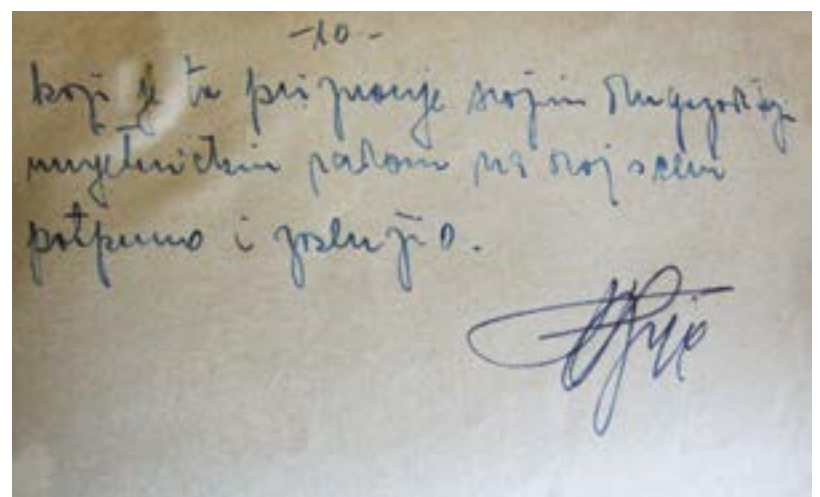 -10-
koji je to priznanje svojim dugogodišnjim
umjetničkim radom na ovoj sceni
potpuno i zaslužio.